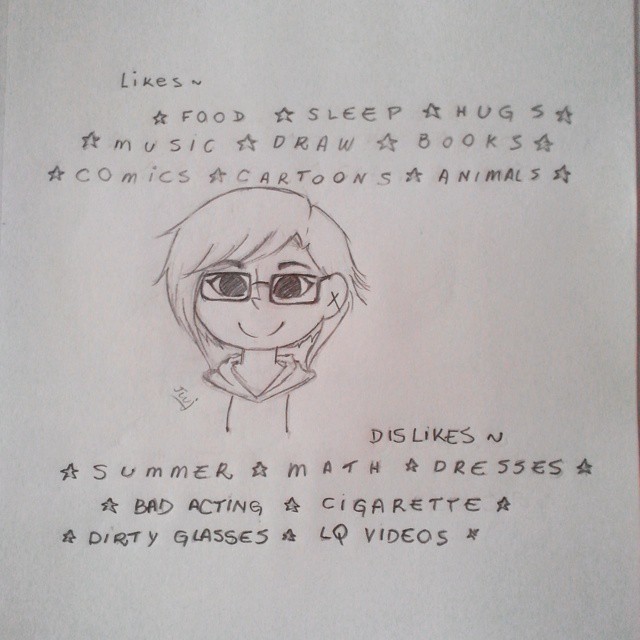 Likes ~
☆ FOOD ☆ SLEEP ☆ HUGS ☆
☆ MUSIC ☆ DRAW ☆ BOOKS ☆
☆ COMICS ☆ CARTOONS ☆ ANIMALS ☆
DISLIKES ~
☆ SUMMER ☆ MATH ☆ DRESSES ☆
☆ BAD ACTING ☆ CIGARETTE ☆
☆ DIRTY GLASSES ☆ LQ VIDEOS ☆